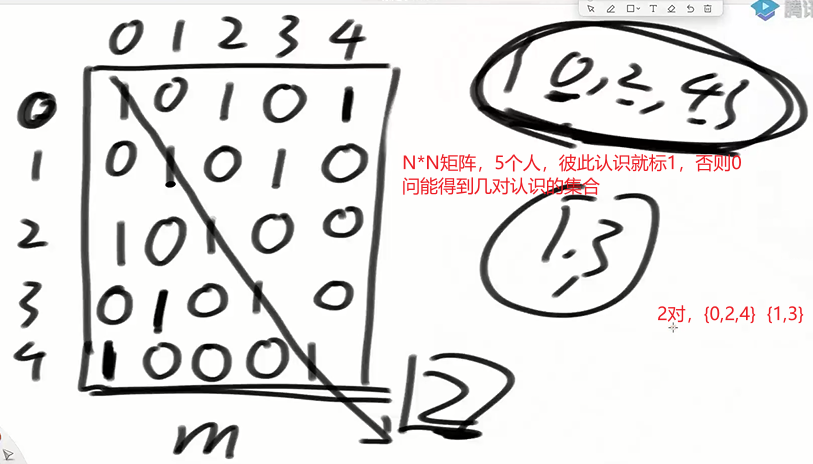 腾讯
0 1 2 3 4
0 1 0 1 0 1
1 0 1 0 1 0
2 1 0 1 0 0
3 0 1 0 1 0
4 1 0 0 0 1
m
{0,2,4}
N*N矩阵，5个人，彼此认识就标1，否则0
问能得到几对认识的集合
1,3
2对，{0,2,4} {1,3}
2